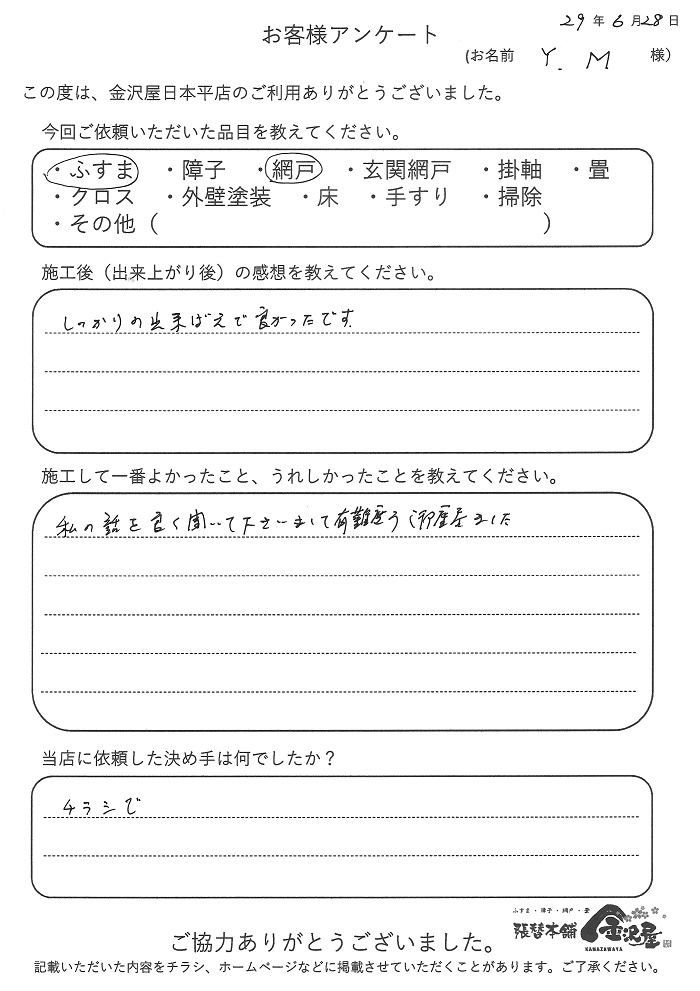 29年6月28日
お客様アンケート
(お名前 Y. M 様)
この度は、金沢屋日本平店のご利用ありがとうございました。
今回ご依頼いただいた品目を教えてください。
・ふすま ・障子 ・網戸 ・玄関網戸 ・掛軸 ・畳
・クロス ・外壁塗装 ・床 ・手すり ・掃除
・その他（ ）
施工後（出来上がり後）の感想を教えてください。
しっかりの出来ばえで良かったです
施工して一番よかったこと、うれしかったことを教えてください。
私の話を良く聞いて下さいまして有難度う御座居ました
当店に依頼した決め手は何でしたか？
チラシで
ふすま・障子・網戸・畳
張替本舗 金沢屋
KANAZAWAYA
ご協力ありがとうございました。
記載いただいた内容をチラシ、ホームページなどに掲載させていただくことがあります。ご了承ください。